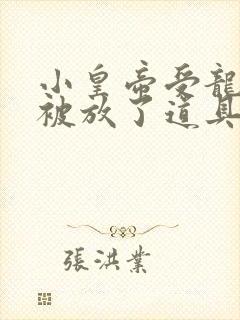 小皇帝受龍
被放了道具
張洪業